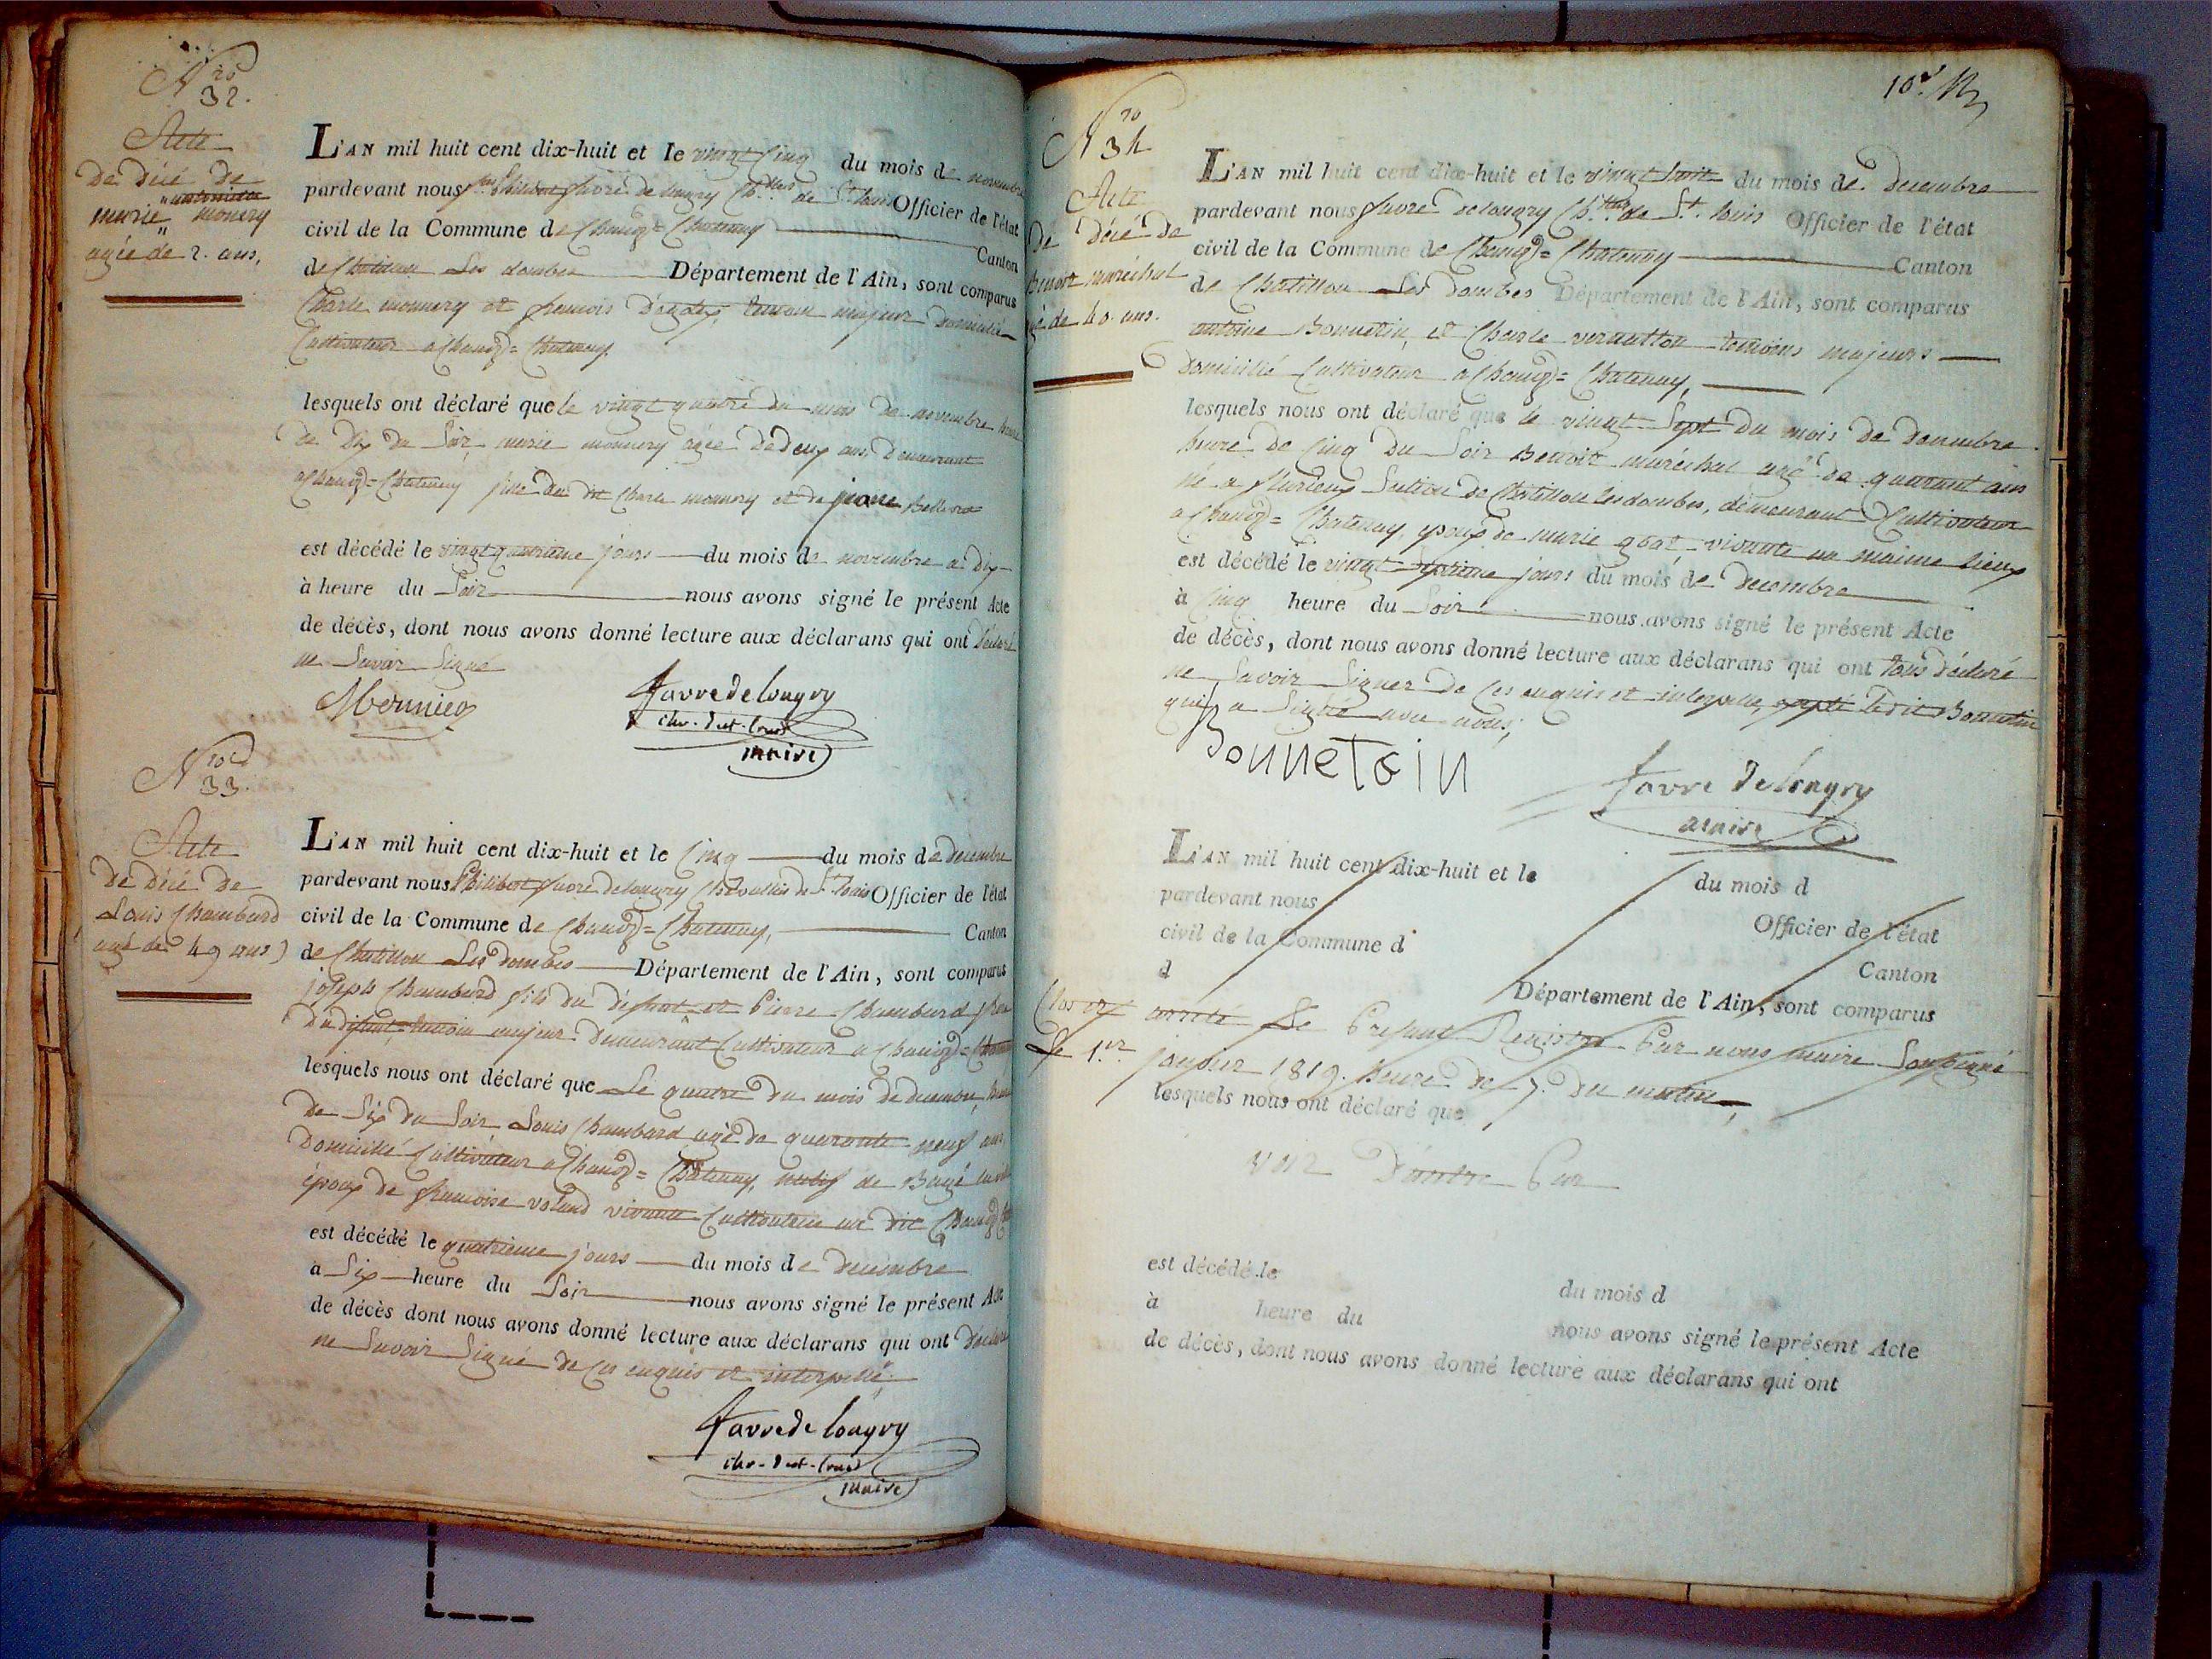 N.ro
32.
Acte
de décé de
marie monery
agée de 2. ans,
L'AN mil huit cent dix-huit et le vingt Cinq du mois de novembre
pardevant nous Philibert favre de longry de St. louis Officier de l'état
civil de la Commune de Chaneg = Chatenay Canton
de Chatillon Les dombes Département de l'Ain, sont comparus
Charle monnery et francois temoin majeur domicilié
Cultivateur a Chaneg = Chatenay
lesquels ont déclaré que le vingt quatre du mois de novembre heure
de Dix du Soir, marie monnery agée de deux ans Demeurant
a Chaneg = Chatenay fille du dit Charle monnery et de
est décédé le vingt quatrieme jours du mois de novembre a Dix
à heure du Soir nous avons signé le présent Acte
de décès, dont nous avons donné lecture aux déclarans qui ont déclaré
ne Savoir Signé
favre de longry
chr. de st. louis
maire
N.ro
33.
Acte
de décé de
Louis Chambard
agé de 49 ans
L'AN mil huit cent dix-huit et le Cinq du mois de decembre
pardevant nous Philibert favre de longry de St. louis Officier de l'état
civil de la Commune de Chaneg = Chatenay, Canton
de Chatillon Les dombes Département de l'Ain, sont comparus
joseph Chambard fils du défunt et Pierre Chambard
du défunt temoin majeur Demeurant Cultivateur a Chaneg =
lesquels nous ont déclaré que Le quatre du mois de decembre, heure
de Six du Soir Louis Chambard agé de quarante neuf ans,
Domicilié Cultivateur a Chaneg = Chatenay, natif de Bagé
époux de francoise voland vivante Cultivatrice au dit Chaneg
est décédé le quatrieme jours du mois de decembre
à Six heure du Soir nous avons signé le présent Acte
de décès dont nous avons donné lecture aux déclarans qui ont déclaré
ne Savoir Signé de Ces enquis et interpellé
favre de longry
chr. de st. louis
maire
N.ro
34
Acte
de décé de
Benoit maréchal
de 40. ans.
L'AN mil huit cent dix-huit et le vingt huit du mois de decembre
pardevant nous favre de longry de St. louis Officier de l'état
civil de la Commune de Chaneg = Chatenay Canton
de Chatillon Les dombes Département de l'Ain, sont comparus
antoine Bonnetin, et Charle temoins majeurs
Domicilié Cultivateur a Chaneg = Chatenay,
lesquels nous ont déclaré que le vingt Sept du mois de decembre
heure de Cinq du Soir Benoit maréchal agé de quarant ans
né a flurieux Section de Chatillon les dombes, demeurant Cultivateur
a Chaneg = Chatenay, epoux de marie vivante au maime lieux
est décédé le vingt septieme jours du mois de decembre
à Cinq heure du Soir nous avons signé le présent Acte
de décès, dont nous avons donné lecture aux déclarans qui ont tous déclaré
ne Savoir Signer de Ces enquis et interpellé, excepté ledit Bonnetin
qui a Signé avec nous,
Bonnetain
favre de longry
maire
L'AN mil huit cent dix-huit et le du mois d
pardevant nous Officier de l'état
civil de la Commune d Canton
d Département de l'Ain, sont comparus
Clos et arreté Le Present Registre Par nous maire Soussigné
Le 1.er janvier 1819. heure de 7. du matin,
lesquels nous ont déclaré que
est décédé le du mois d
à heure du nous avons signé le présent Acte
de décès, dont nous avons donné lecture aux déclarans qui ont